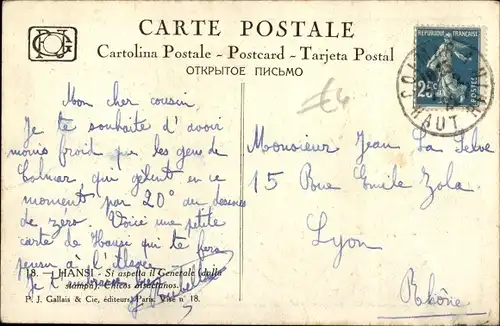 CARTE POSTALE
Cartolina Postale - Postcard - Tarjeta Postal
ОТКРЫТОЕ ПИСЬМО
REPUBLIQUE FRANÇAISE
25c
POSTES
HAUT RHIN
£4
Mon cher cousin
Je te souhaite d'avoir
moins froid que les gens de
Colmar qui gèlent en ce
moment par 20° au dessous
de zéro. Voici une petite
carte de Hansi qui te fera
penser à l'Alsace
Je t'embrasse
Monsieur Jean La Selve
15 Rue Emile Zola
Lyon
Rhône
18. - HANSI - Si aspetta il Generale (dalla
stampa). Chicos alsacianos.
P. J. Gallais & Cie, éditeurs, Paris. Visé n° 18.